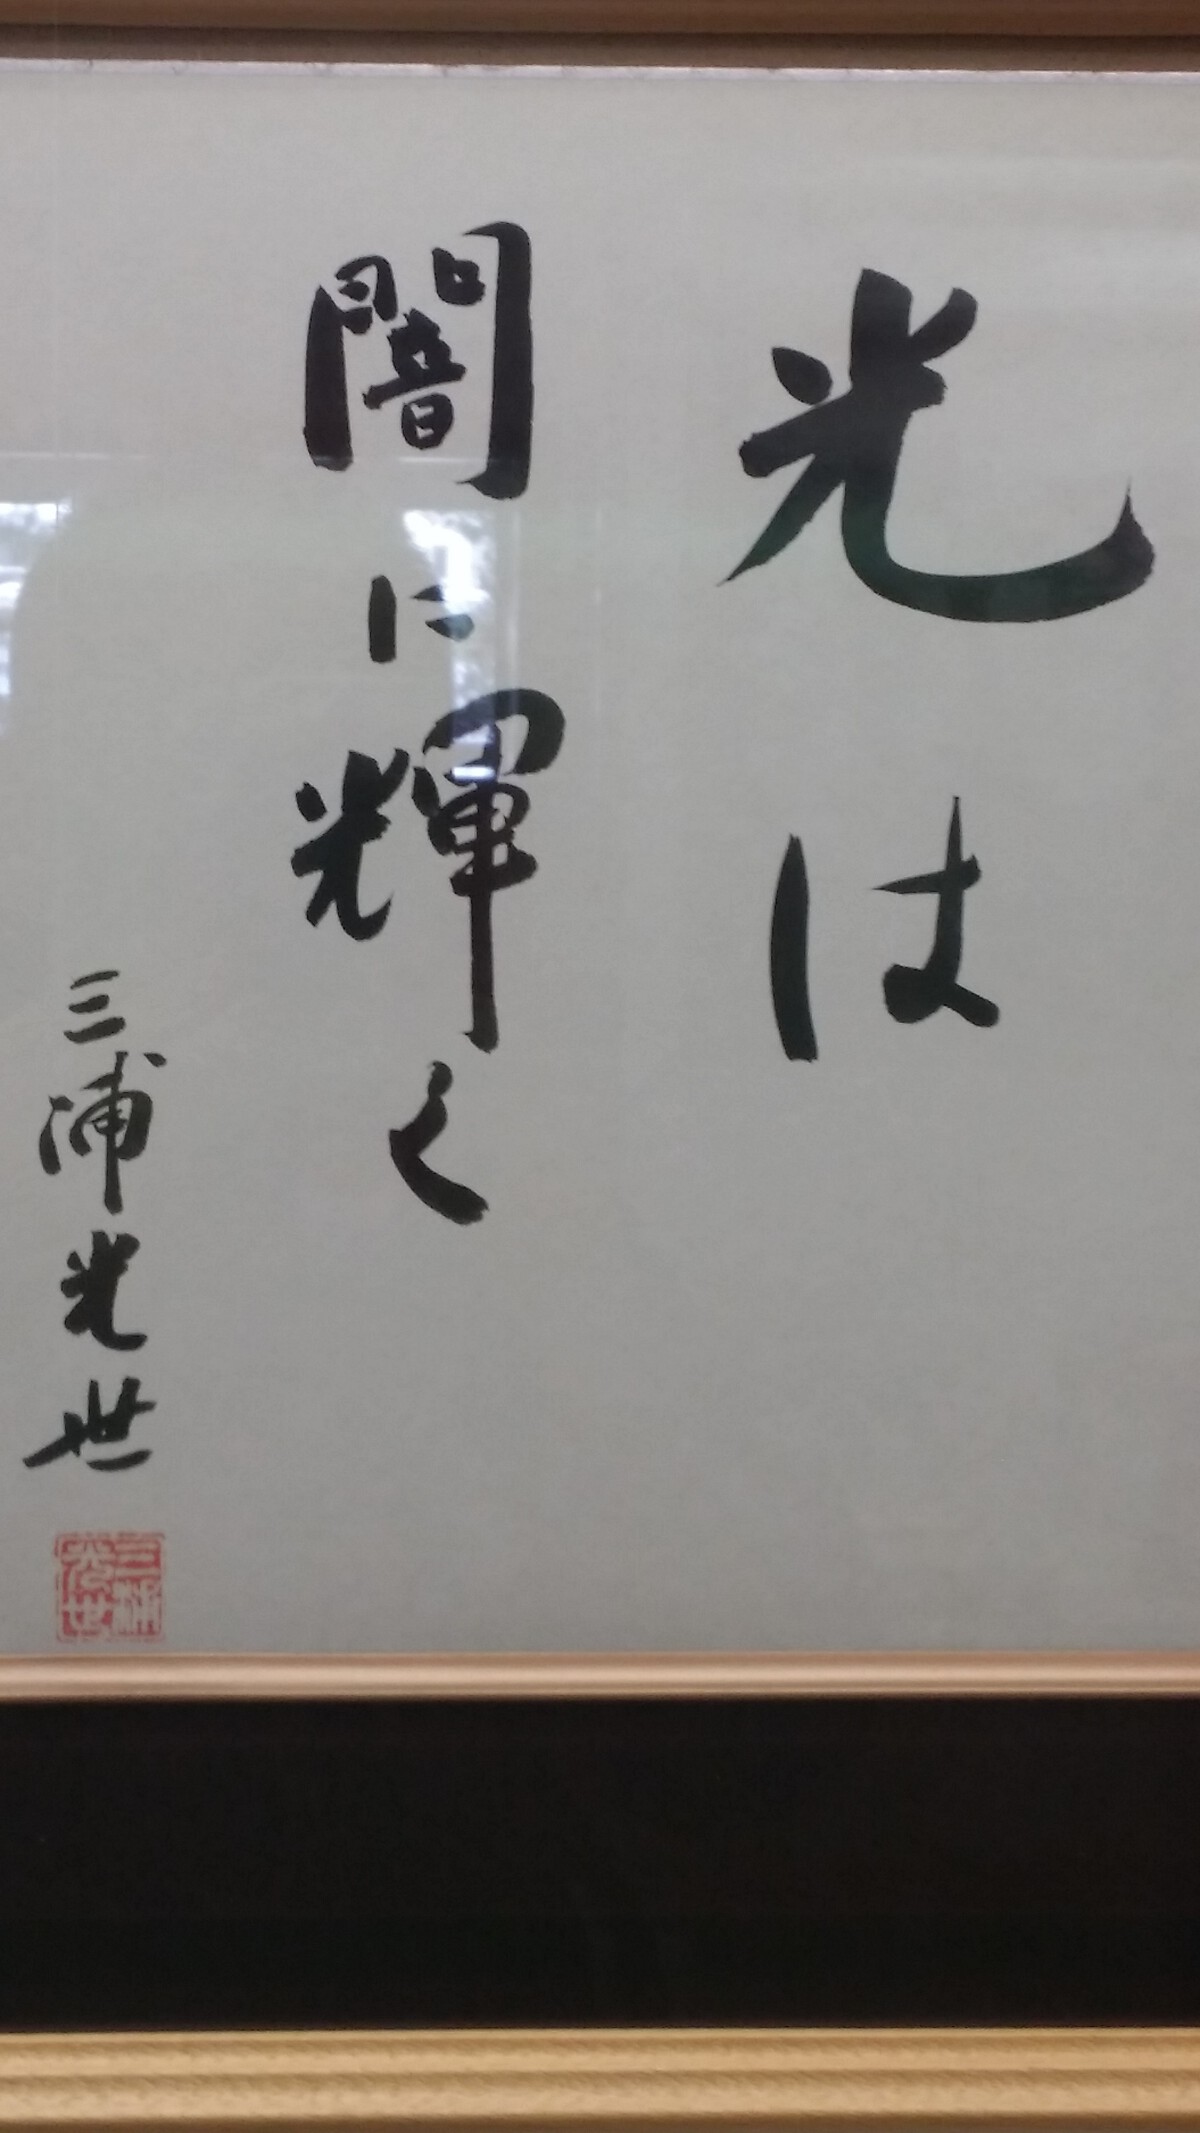 光は
闇に輝く
三浦光世
三浦
光世